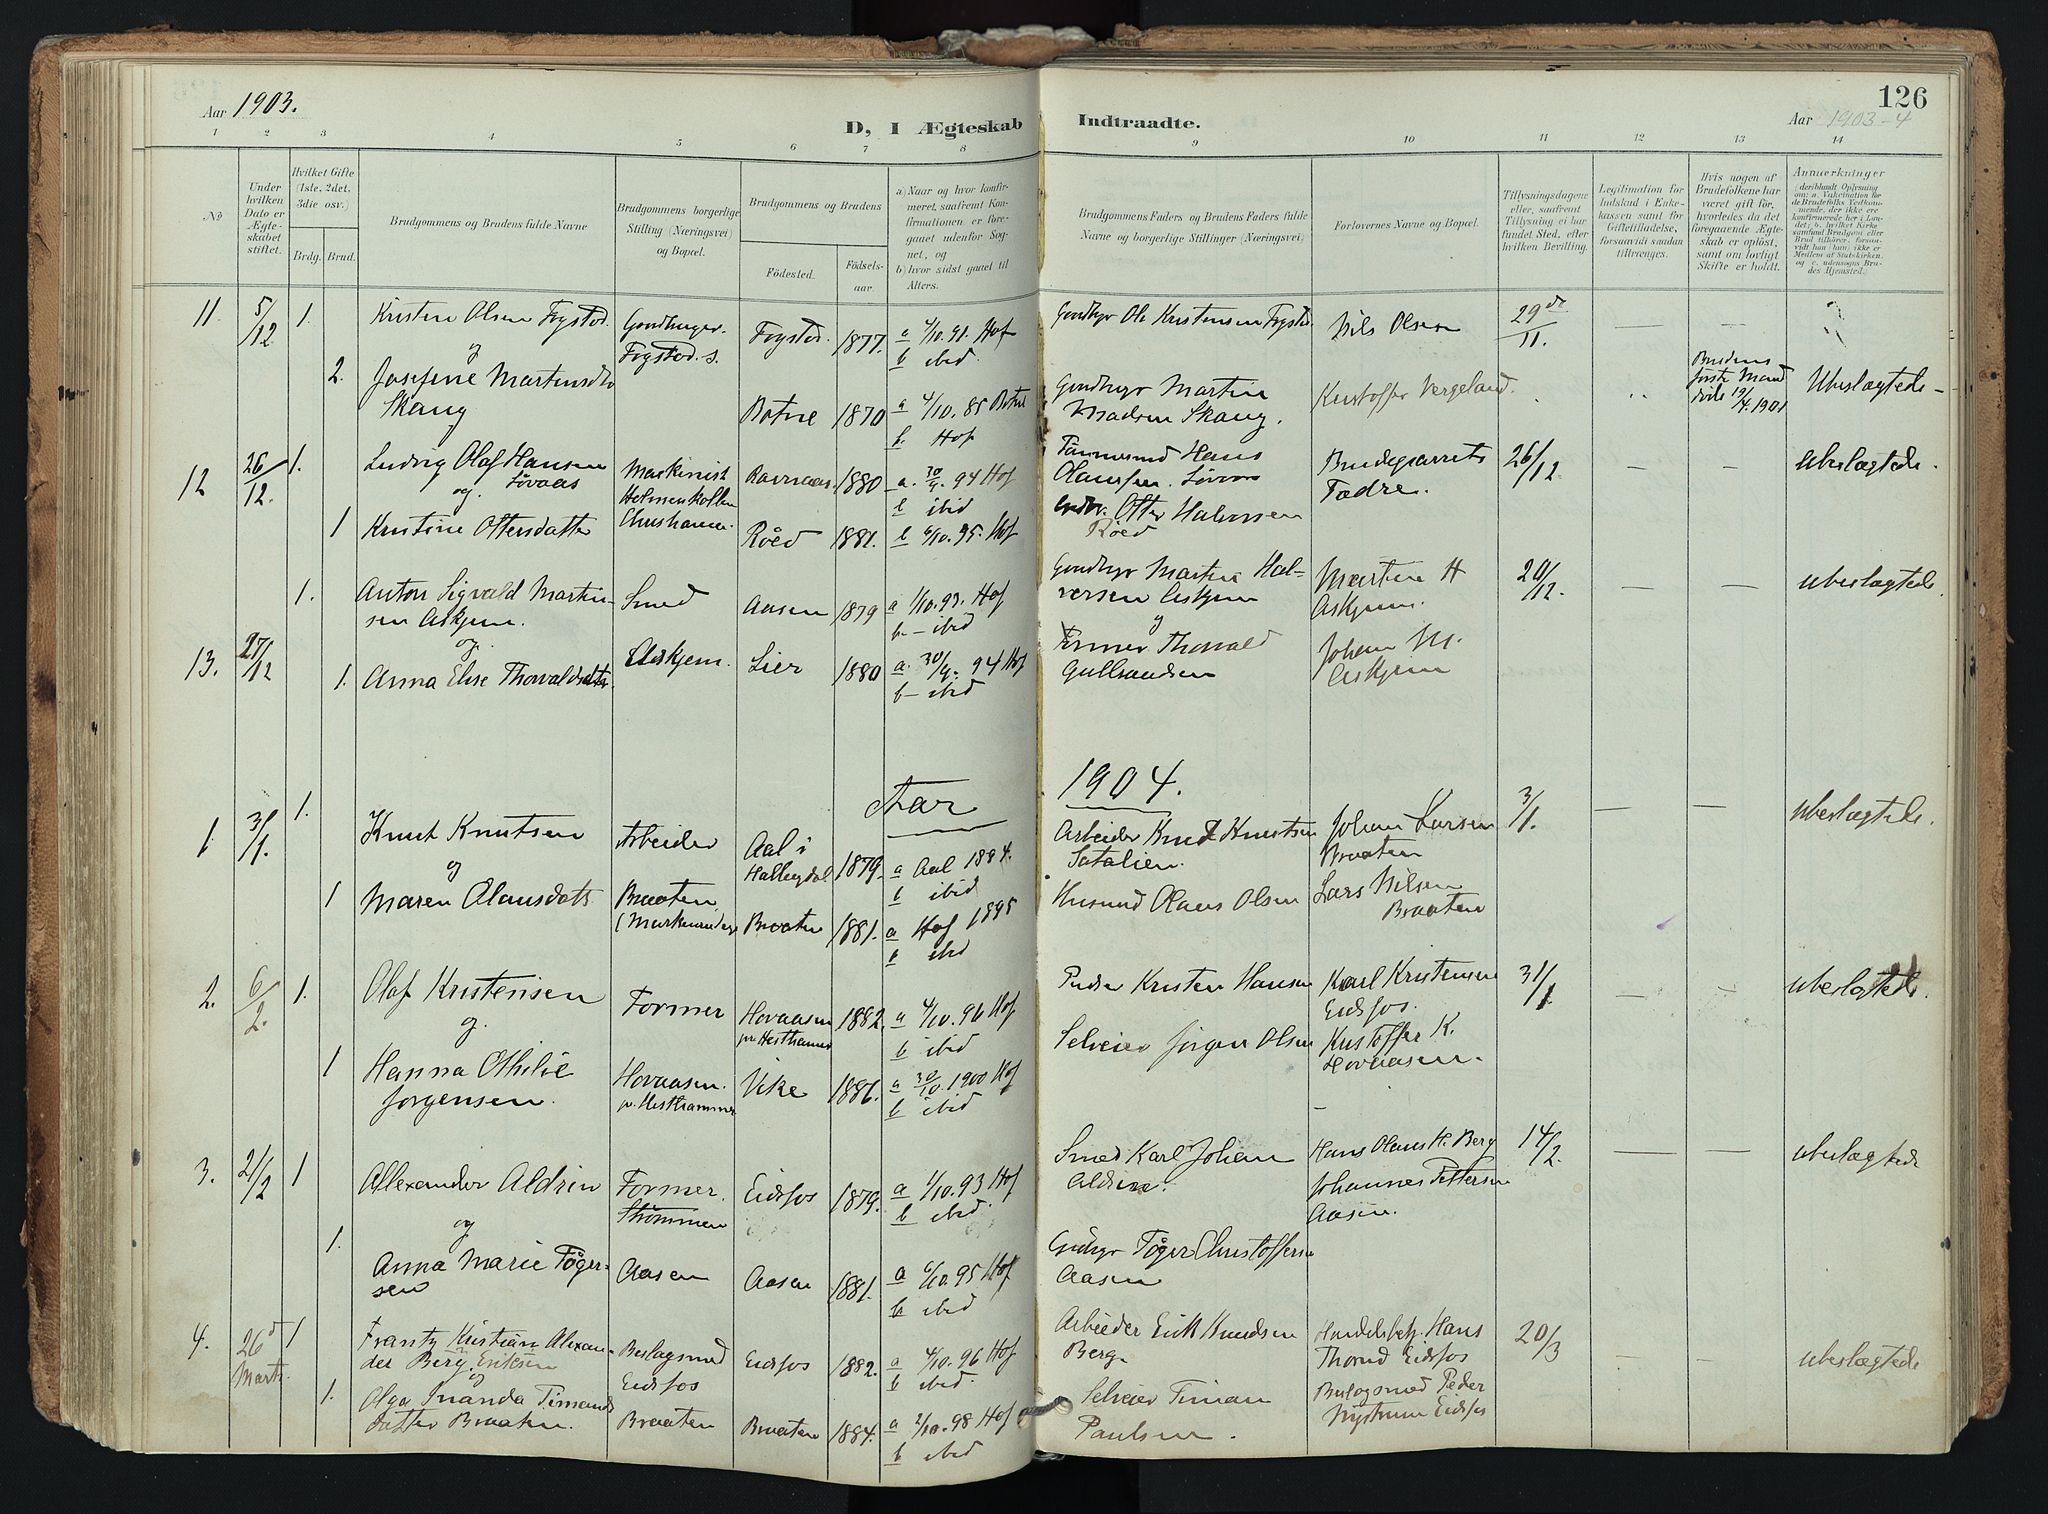 Aar 1903.
D, I Ægteskab Indtraadte.
126
Aar 1903-4
1 2 3 4 5 6 7 8 9 10 11 12 13 14
No
Under hvilken Dato er Ægteskabet stiftet.
Hvilket Gifte (1ste, 2det, 3die osv.)
Brdg. Brud.
Brudgommens og Brudens fulde Navne
Brudgommens borgerlige Stilling (Næringsvei) og Bopæl.
Brudgommens og Brudens
Födested. Födsels-aar.
a) Naar og hvor konfirmeret, saafremt Konfirmationen er foregaaet udenfor Sognet, og
b) hvor sidst gaaet til Alters.
Brudgommens Faders og Brudens Faders fulde Navne og borgerlige Stillinger (Næringsvei)
Forlovernes Navne og Bopæl.
Tillysningsdagene eller, saafremt Tillysning ei har fundet Sted, efter hvilken Bevilling.
Legitimation for Indskud i Enkekassen samt for Giftetilladelse, forsaavidt saadan tiltrænges.
Hvis nogen af Brudefolkene har været gift för, hvorledes da det foregaaende Ægteskab er oplöst, samt om lovligt Skifte er holdt.
Anmærkninger
11 5/12 1. Kristen Olsen Fogstad. Gaardbruger. Fogstad. s. Fogstad. 1877. a 4/10. 91. Hof
b ibid. Gaardbgr Ole Kristensen Fogstad. Nils Olsen 29de/11. — —
og
2. Josefine Martinsdtr Skaug Botne 1870 a 4/10. 85 Botne
b. Hof Gaardbgr Martin Madsen Skaug. Kristoffer Vergeland. Brudens første Mand døde 19/4. 1901 Ubeslægtede
12 26/12. 1. Ludvig Olaf Hansen Løvaas Maskinist Holmenkollen Christiania. Ravnaas. 1880 a. 30/9. 94 Hof
b ibid Tømmermd Hans Olaussen. Løvaas Brudeparrets Fædre. 26/12. — — Ubeslægtede.
og.
1 Kristine Ottersdatter Røed 1881. b 6/10. 95. Hof Otter Halvorsen Røed
13. 27/12 1. Anton Sigvald Martinsen Askjem. Smed Aasen 1879 a 1/10. 93. Hof
b – ibid Gaardbgr Martin Halvorsen Askjem Martin H Askjem. 20/12. — — ubeslægtede.
og
1. Anna Elise Thorvaldsdtr. Askjem. Lier 1880 a. 30/9. 94 Hof
b – ibid Former Thorvald Gulbrandsen Johan M. Askjem
Aar 1904.
1. 3/1. 1. Knut Knutsen Arbeider Aal i Hallingdal 1879. a Aal 1884.
b ibid Arbeider Knut Knutsen Satalien. Johan Larsen Braaten 3/1. — — ubeslægtede.
og
1 Maren Olausdatt Braaten Braaten 1881. a Hof 1895
b ibid Husmand Olaus Olsen Lars Nilsen Braaten
2. 6/2. 1. Olaf Kristensen Former Hovaasen pr Hesthammer 1882. a 4/10. 96 Hof
b ibid Kristen Hansen Karl Kristensen Eidsfos. 31/1. — — ubeslægtede.
og.
1 Hanna Othilie Jørgensen. Hovaasen. pr. Hesthammer Vike 1886. a 30/10. 1900 Hof
b ibid Selveier Jørgen Olsen Kristoffer K. Hovaasen.
3. 21/2 1 Allexander Aldrin Former. Strømmen Eidsfos 1879. a 1/10. 93 Hof
b ibid. Smed Karl Johan Aldrin. Hans Olaus H. Berg
Johannes Pettersen Aasen. 14/2. — — ubeslægtede
og
1. Anna Marie Tøgersen Aasen Aasen 1881. a 6/10. 95 Hof
b ibid Gdbgr Tøger Christoffersen Aasen
4. 26d Marts. 1 Frantz Kristian Alexander Berg Eriksen Beslagsmed Eidsfos Eidsfos 1882. a 4/10. 96 Hof
b ibid. Arbeider Erik Knudsen Berg. Handelsbetj. Hans Thorud Eidsfos 20/3 — — ubeslægtede
og
1. Olga Inanda Timandsdatter Braaten. Braaten Braaten 1884. a 2/10. 98 Hof
b ibid Selveier Timan Paulsen. Beslagsmed Peder Nystrøm Eidsfos